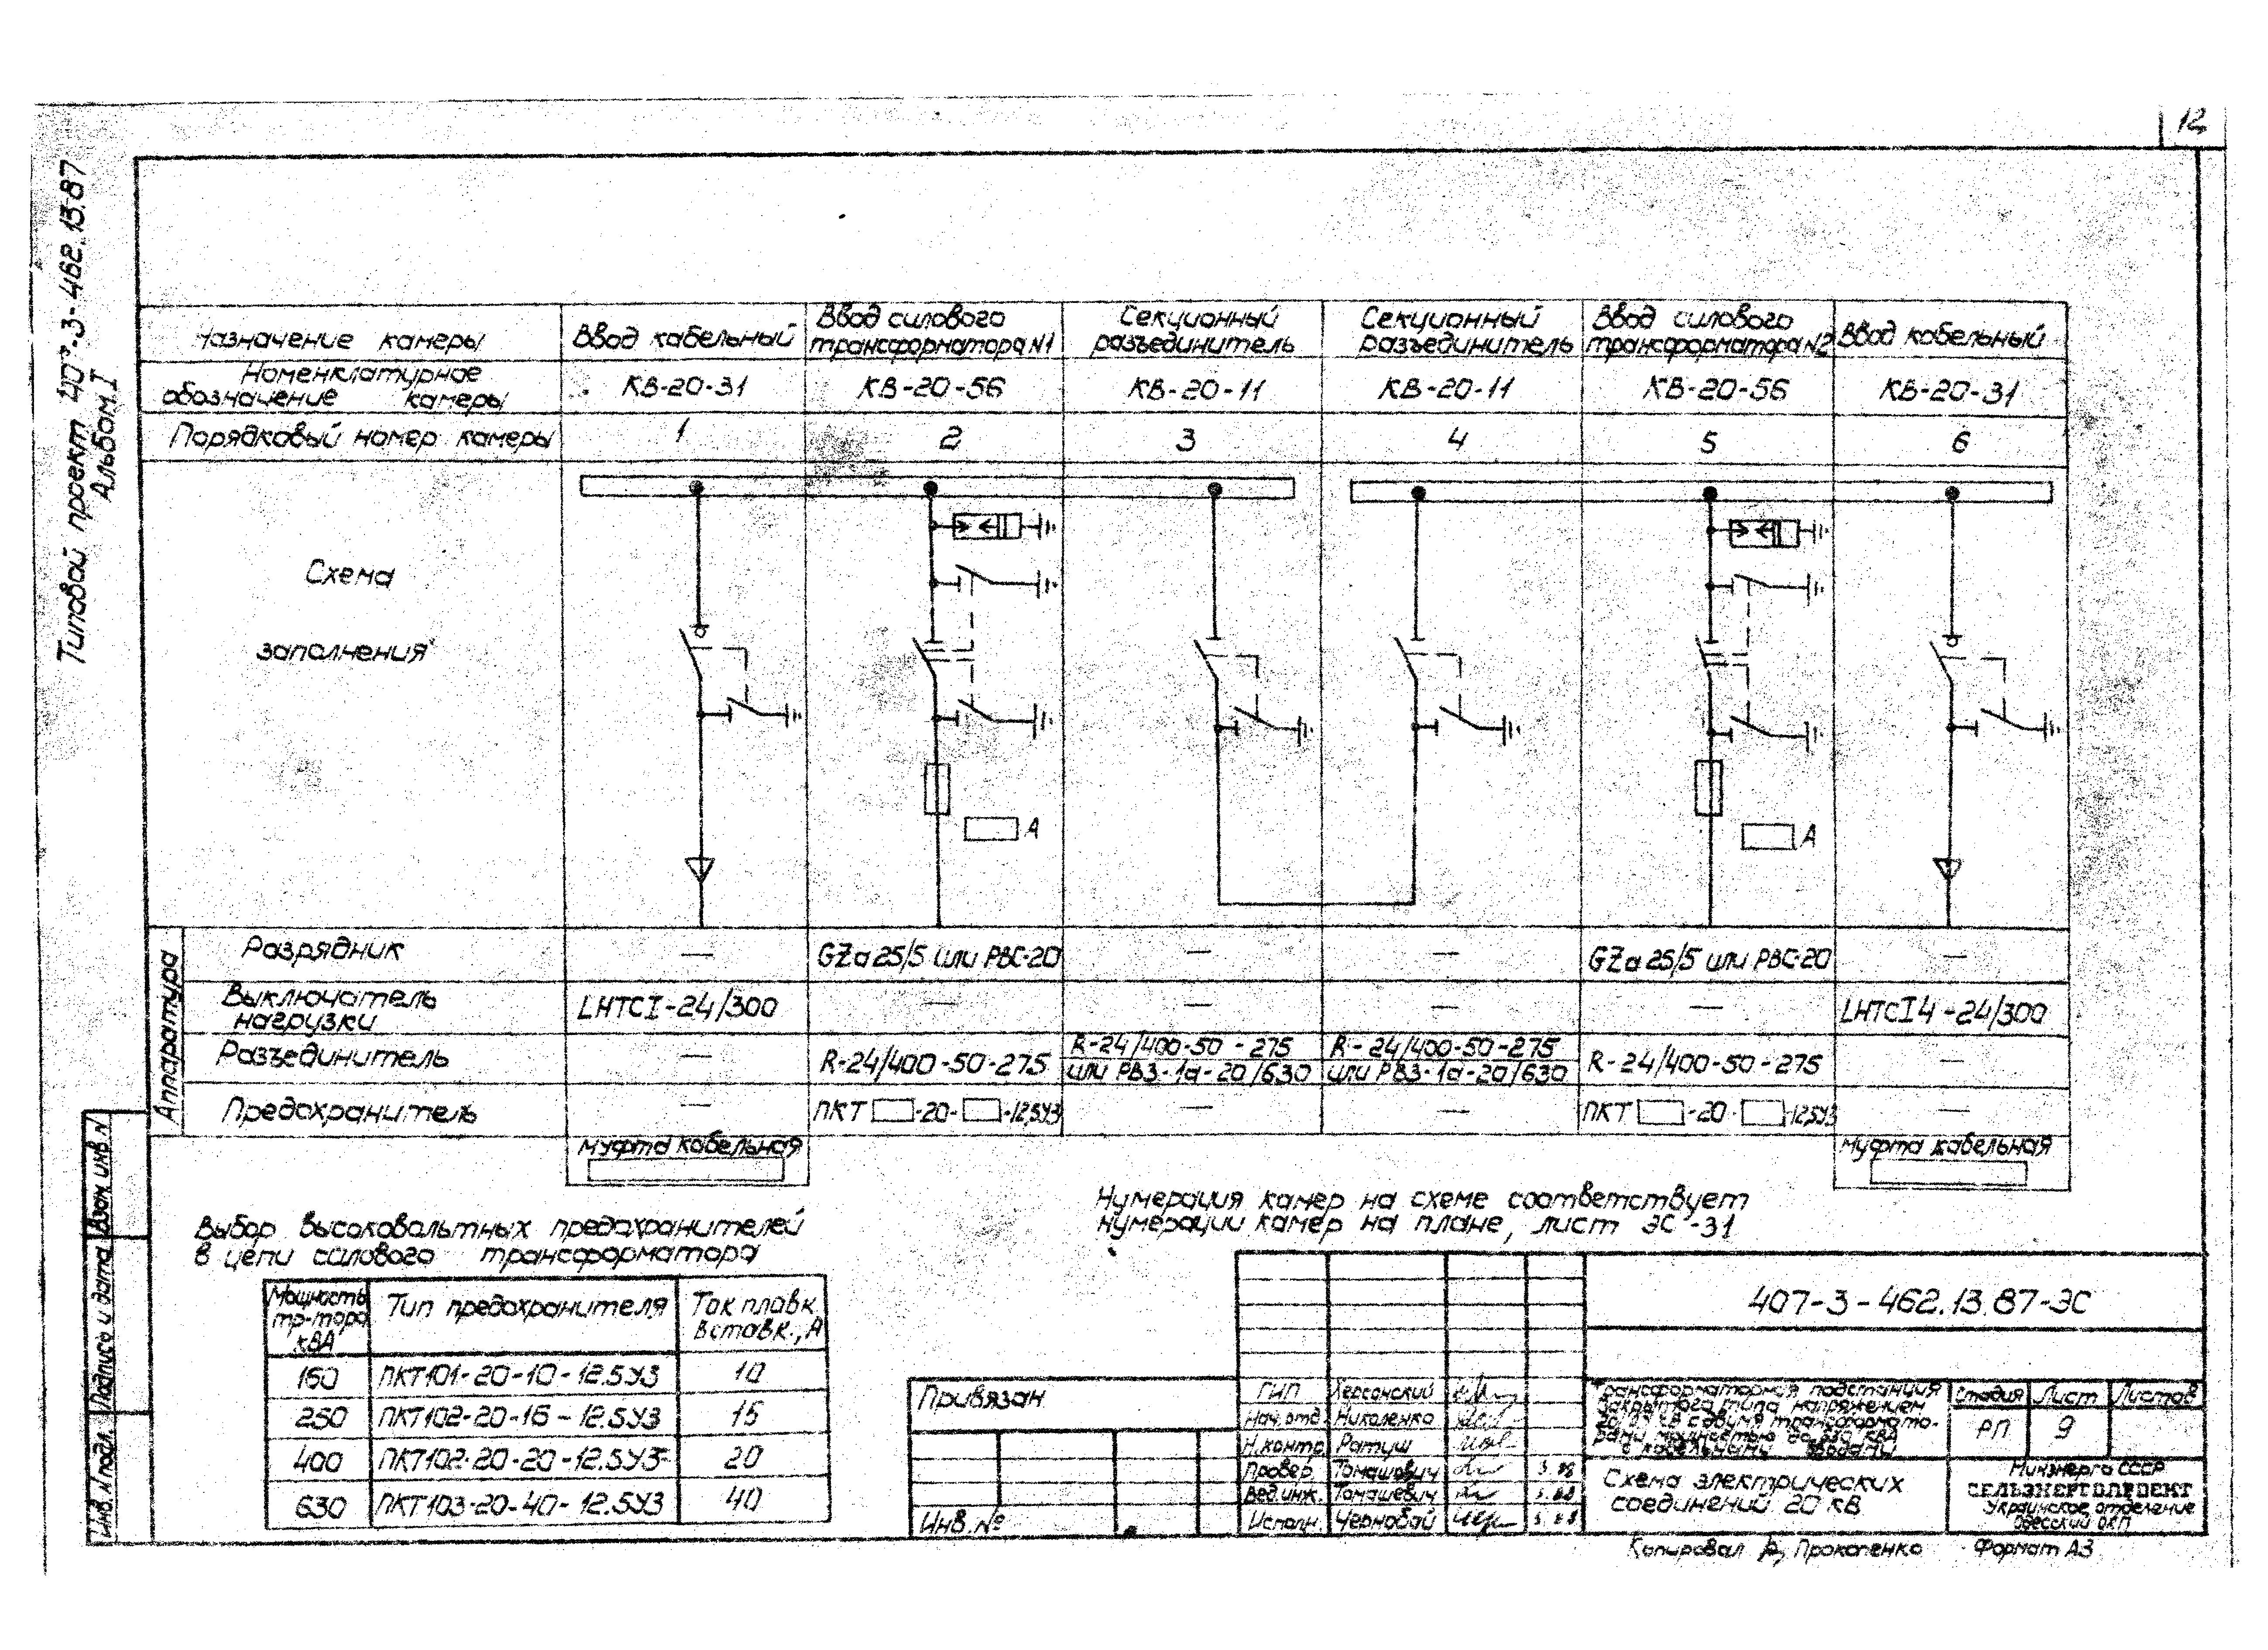 12
Типовой проект 407-3-462.13.87
Альбом I
Назначение камеры
Ввод кабельный
Ввод силового
трансформатора N1
Секционный
разъединитель
Секционный
разъединитель
Ввод силового
трансформатора N2
Ввод кабельный
Номенклатурное
обозначение камеры
КВ-20-31
КВ-20-56
КВ-20-11
КВ-20-11
КВ-20-56
КВ-20-31
Порядковый номер камеры
1
2
3
4
5
6
Схема
заполнения
А
А
Аппаратура
Разрядник
—
GZa 25/5 или РВС-20
—
—
GZa 25/5 или РВС-20
—
Выключатель
нагрузки
LHTCI-24/300
—
—
—
—
LHTCI4-24/300
Разъединитель
—
R-24/400-50-275
R-24/400-50-275
или РВЗ-1а-20/630
R-24/400-50-275
или РВЗ-1а-20/630
R-24/400-50-275
—
Предохранитель
—
ПКТ -20- -12,5У3
—
—
ПКТ -20- -12,5У3
—
муфта кабельная
муфта кабельная
Нумерация камер на схеме соответствует
нумерации камер на плане, лист ЭС-31
Выбор высоковольтных предохранителей
в цепи силового трансформатора
Мощность
тр-тора
кВА
Тип предохранителя
Ток плавк.
вставк., А
160
ПКТ101-20-10-12.5У3
10
250
ПКТ102-20-16-12.5У3
15
400
ПКТ102-20-20-12.5У3
20
630
ПКТ103-20-40-12.5У3
40
Взам инв N
Подпись и дата
Инв. N подл.
Привязан
Инв. №
ГИП Херсонский
Нач. отд. Николенко
Н.контр. Ратуш
Провер. Томашевич
Вед.инж. Томашевич
Исполн. Чернобай
407-3-462.13.87-ЭС
Трансформаторная подстанция
закрытого типа напряжением
20/0,4 кВ с двумя трансформато-
рами мощностью до 630 кВА
с кабельными вводами
Стадия
Лист
Листов
РП
9
Схема электрических
соединений 20 кВ
Минэнерго СССР
СЕЛЬЭНЕРГОПРОЕКТ
Украинское отделение
Одесский ОКП
Копировал Прокопенко
Формат А3